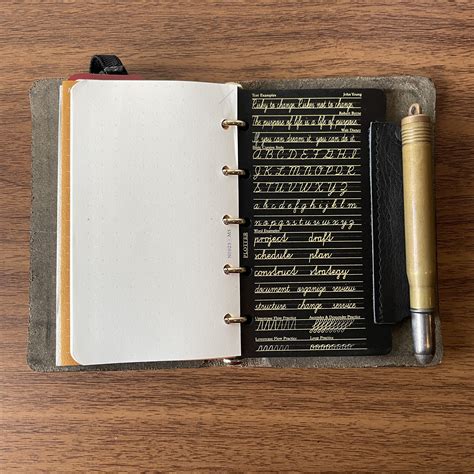 Text Examples John Young
Risky to change. Riskier not to change.
Robert Byrne
The purpose of life is a life of purpose.
Walt Disney
If you can dream it, you can do it.
A B C D E F G H I
J K L M N O P Q R
S T U V W X Y Z
a b c d e f g h i j k l m
n o p q r s t u v w x y z
Word Examples
project draft
schedule plan
construct strategy
document organize review
structure change service
Understroke Flow Practice Ascender & Descender Practice
Overstroke Flow Practice Loop Practice
PLOTTER